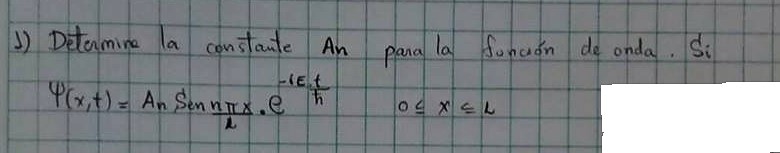 1) Determine la constante An para la función de onda. Si
Ψ(x,t) = An Sen nπx/L . e^-iE t/ħ 0 ≤ x ≤ L